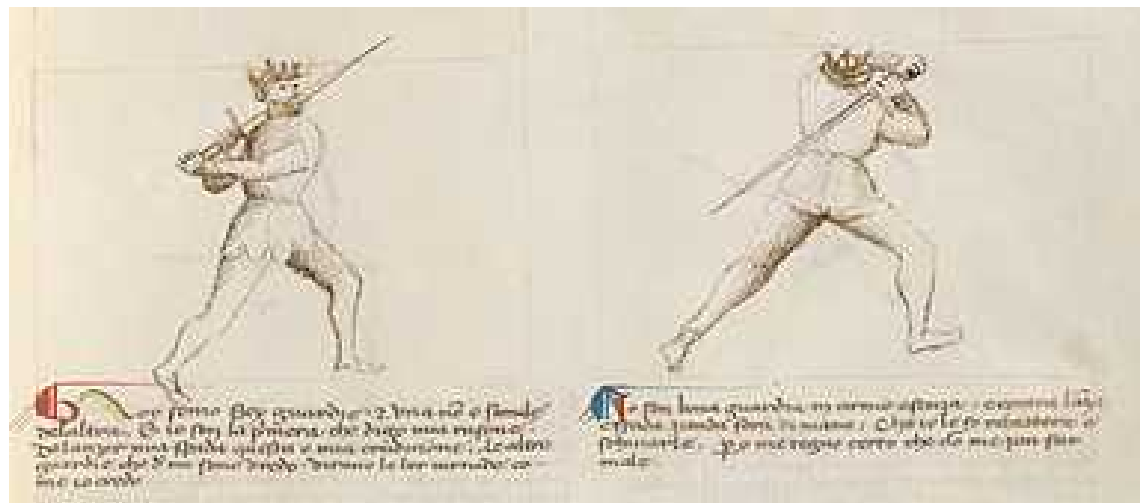 semo sey guardie e una no e simile
de laltra. E io son la primera che digo mia rasone.
De lanzar mia spada questa e mia condicione. Le altre
guardie che de mi sono dredo dirano le lor virtude co
me io credo
Io son bona guardia in arme e senza e contra lanza
e spada fora di mano. Che io le so rebattere e
schivarle. Pero me tegno certo che no me pon far
male